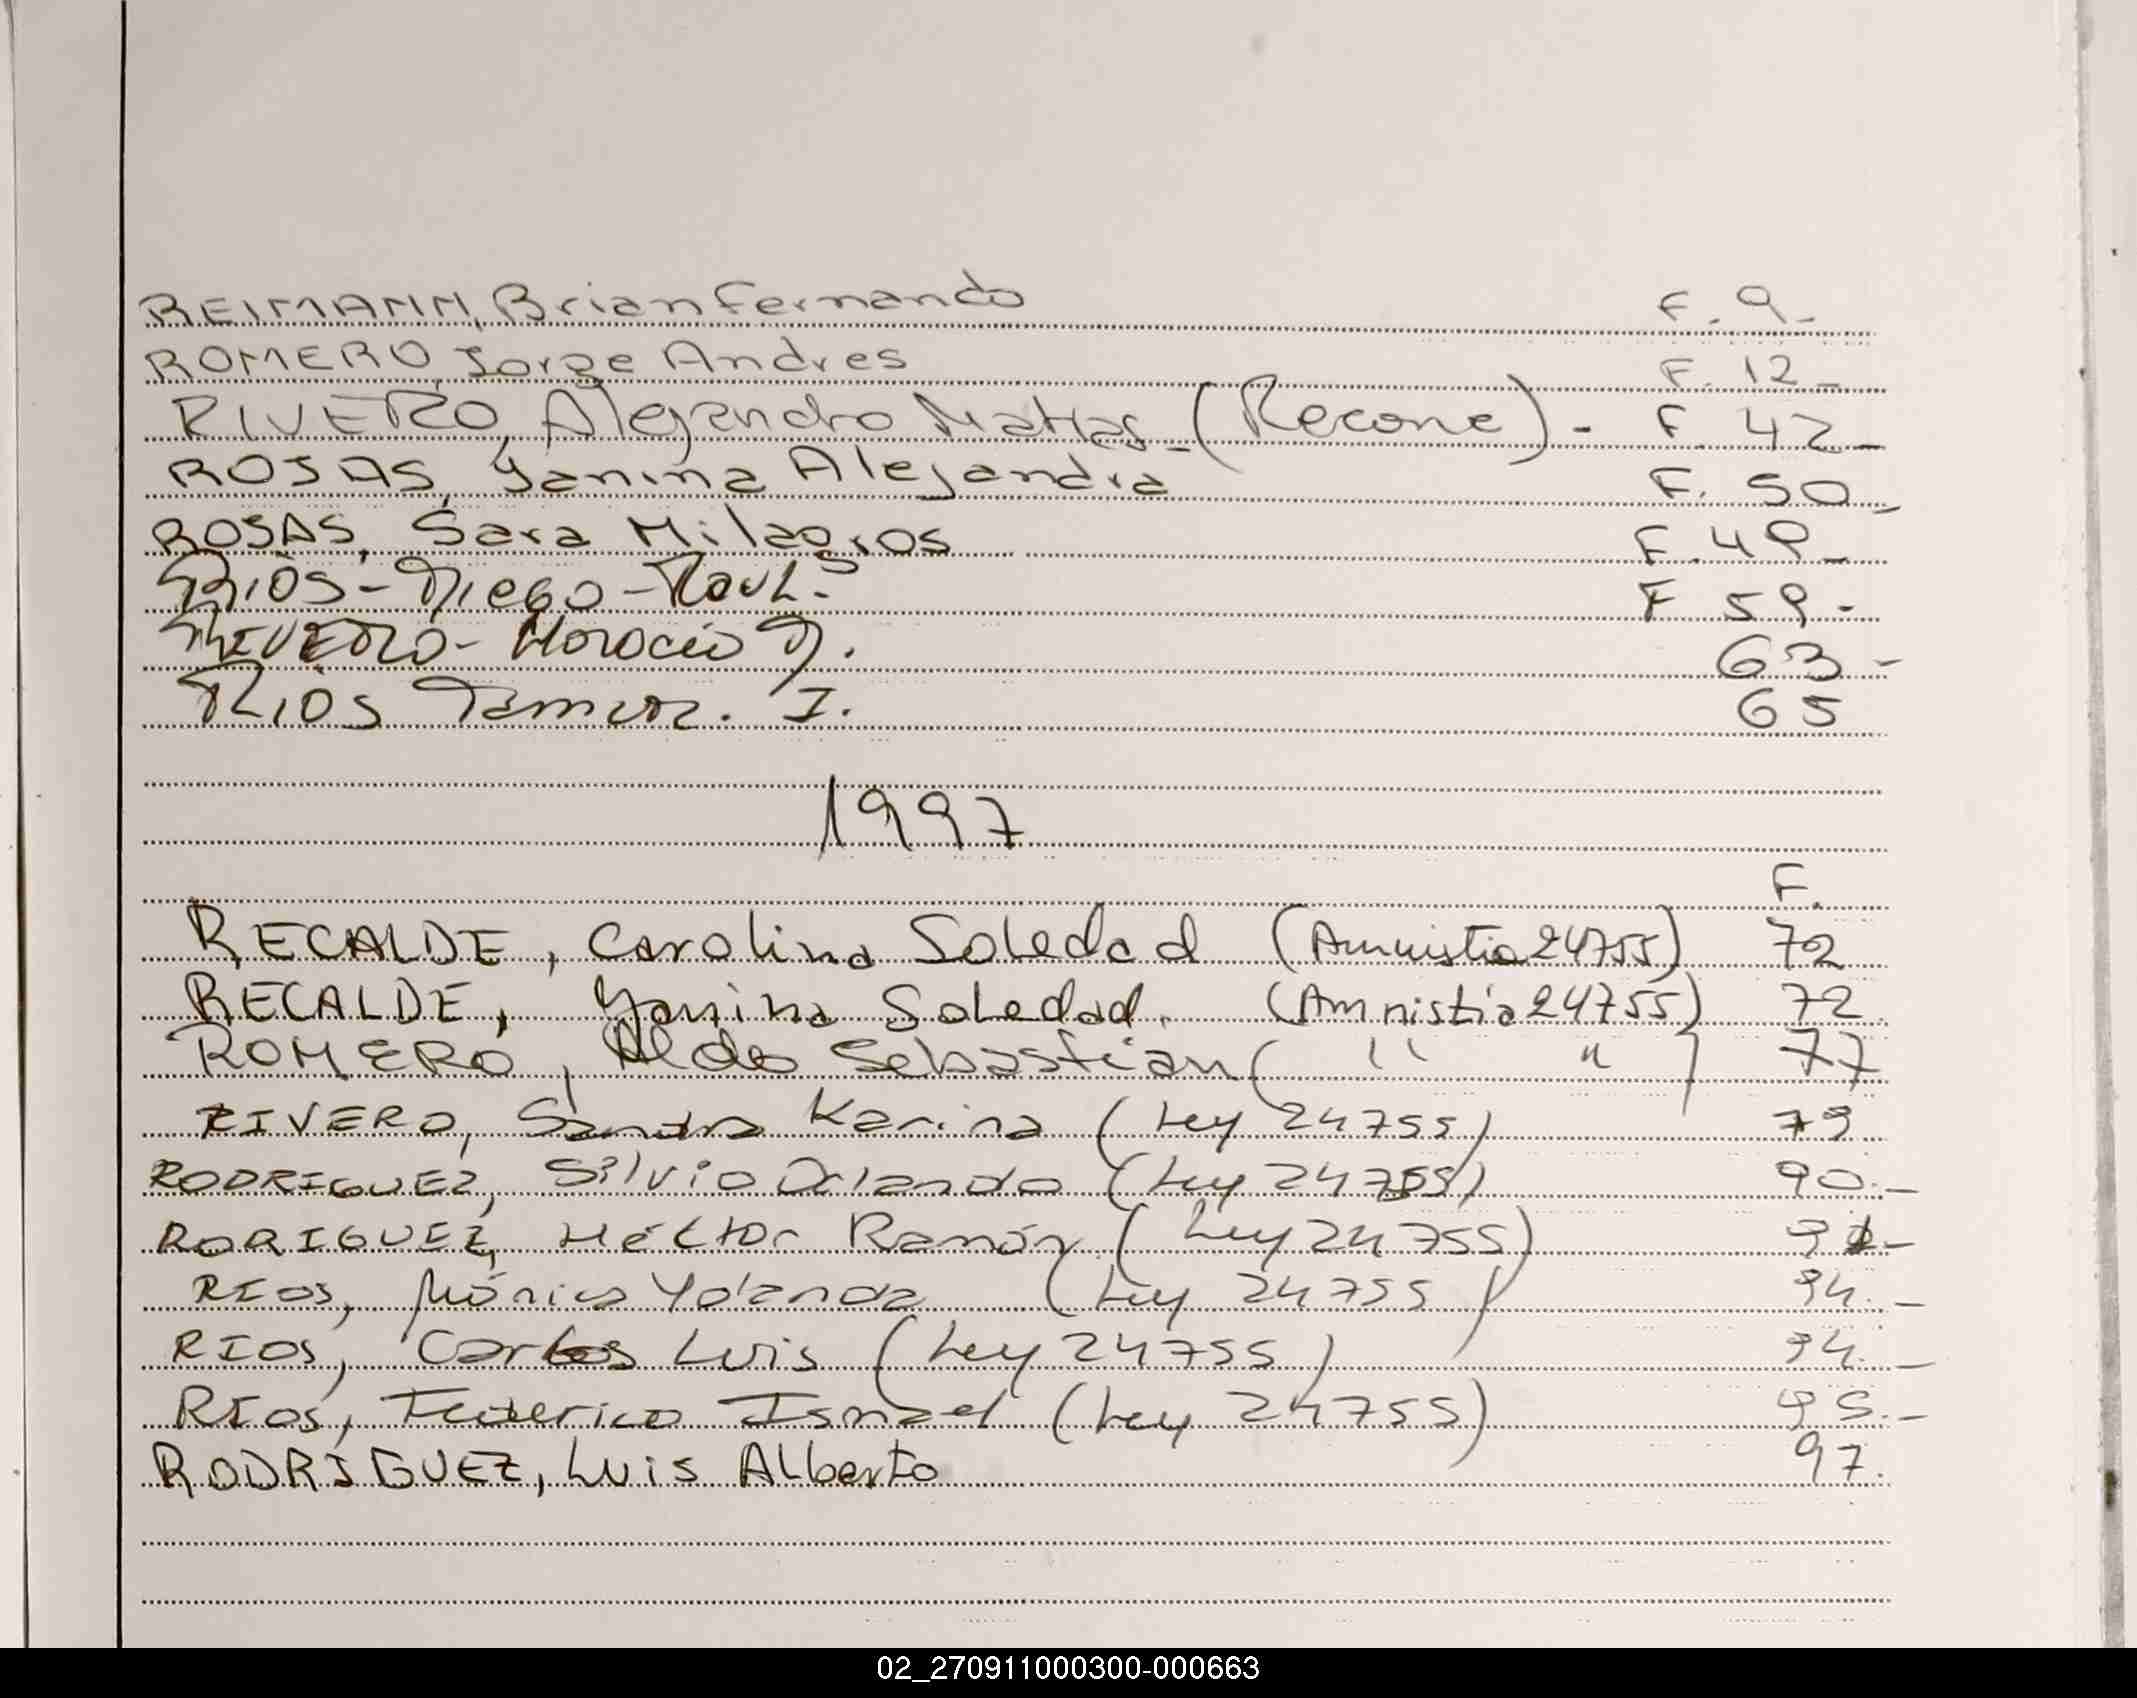 REIMANN, Brian Fernando F. 9-
ROMERO, Jorge Andres F. 12-
RIVERO, Alejandro Matias (Recone) - F. 42-
ROJAS, Yanina Alejandra F. 50-
ROSAS, Sara Milagros F. 49-
Rios - Diego - Raul - F 59-
RIVERO - Horacio D. 63-
Rios I. 65
1997
F.
RECALDE, Carolina Soledad (Amnistia 24755) 72
RECALDE, Yanina Soledad. (Amnistia 24755) 72
ROMERO, Aldo Sebastian ( " " ) 77
RIVERO, Sandra Karina (Ley 24755) 79
RODRIGUEZ, Silvio Orlando (Ley 24755) 90.-
RORIGUEZ, Héctor Ramón (Ley 24755)
RIOS, Mónica Yolanda (Ley 24755) 94.-
RIOS, Carlos Luis (Ley 24755) 94.-
RIOS, Federico Ismael (Ley 24755) 95.-
RODRIGUEZ, Luis Alberto 97.
02_270911000300-000663